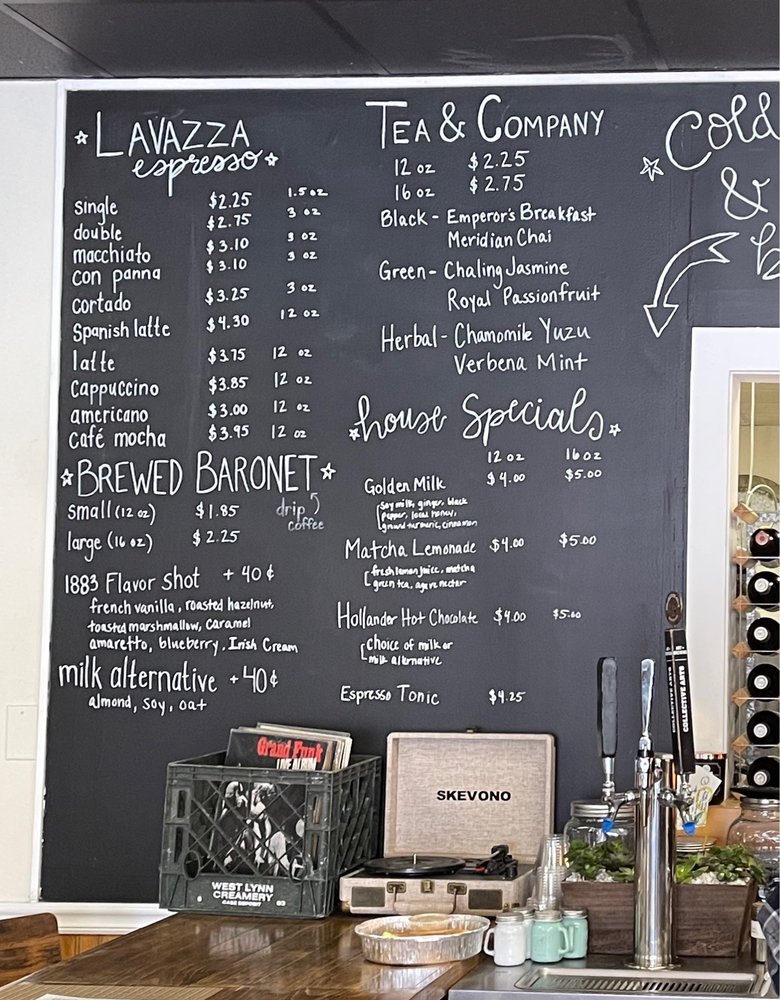 LAVAZZA
espresso
single $2.25 1.5 oz
double $2.75 3 oz
macchiato $3.10 3 oz
con panna $3.10 3 oz
cortado $3.25 3 oz
Spanish latte $4.30 12 oz
latte $3.75 12 oz
cappuccino $3.85 12 oz
americano $3.00 12 oz
café mocha $3.95 12 oz
BREWED BARONET
small (12 oz) $1.85
drip
coffee
large (16 oz) $2.25
1883 Flavor shot +40¢
french vanilla, roasted hazelnut,
toasted marshmallow, caramel
amaretto, blueberry, Irish Cream
milk alternative +40¢
almond, soy, oat
TEA & COMPANY
12 oz $2.25
16 oz $2.75
Black - Emperor's Breakfast
Meridian Chai
Green - Chaling Jasmine
Royal Passionfruit
Herbal - Chamomile Yuzu
Verbena Mint
house Specials
12 oz 16 oz
Golden Milk $4.00 $5.00
soy milk, ginger, black
pepper, local honey,
ground turmeric, cinnamon
Matcha Lemonade $4.00 $5.00
fresh lemon juice, matcha
green tea, agave nectar
Hollander Hot Chocolate $4.00 $5.00
choice of milk or
milk alternative
Espresso Tonic $4.25
Cold
&
Grand Funk
LIVE ALBUM
WEST LYNN
CREAMERY
SKEVONO
COLLECTIVE ARTS